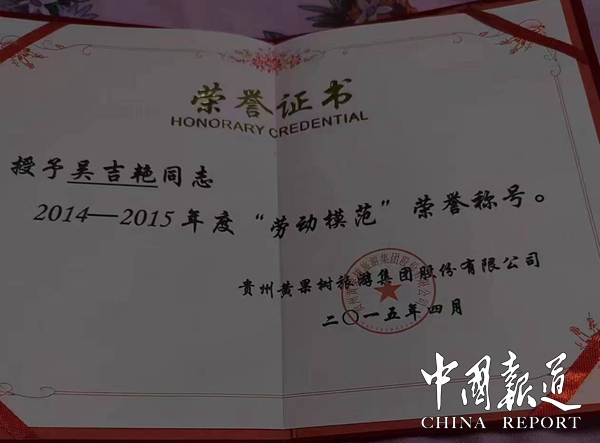 荣誉证书
HONORARY CREDENTIAL
授予吴吉艳同志
2014—2015年度“劳动模范”荣誉称号。
贵州黄果树旅游集团股份有限公司
二〇一五年四月
中国报道
CHINA REPORT